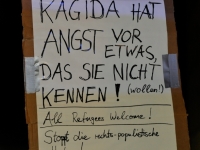 KAGIDA HAT
ANGST VOR
ETWAS,
DAS SIE NICHT
KENNEN! (wollen!)
All Refugees Welcome!
Stoppt die rechts-populistische